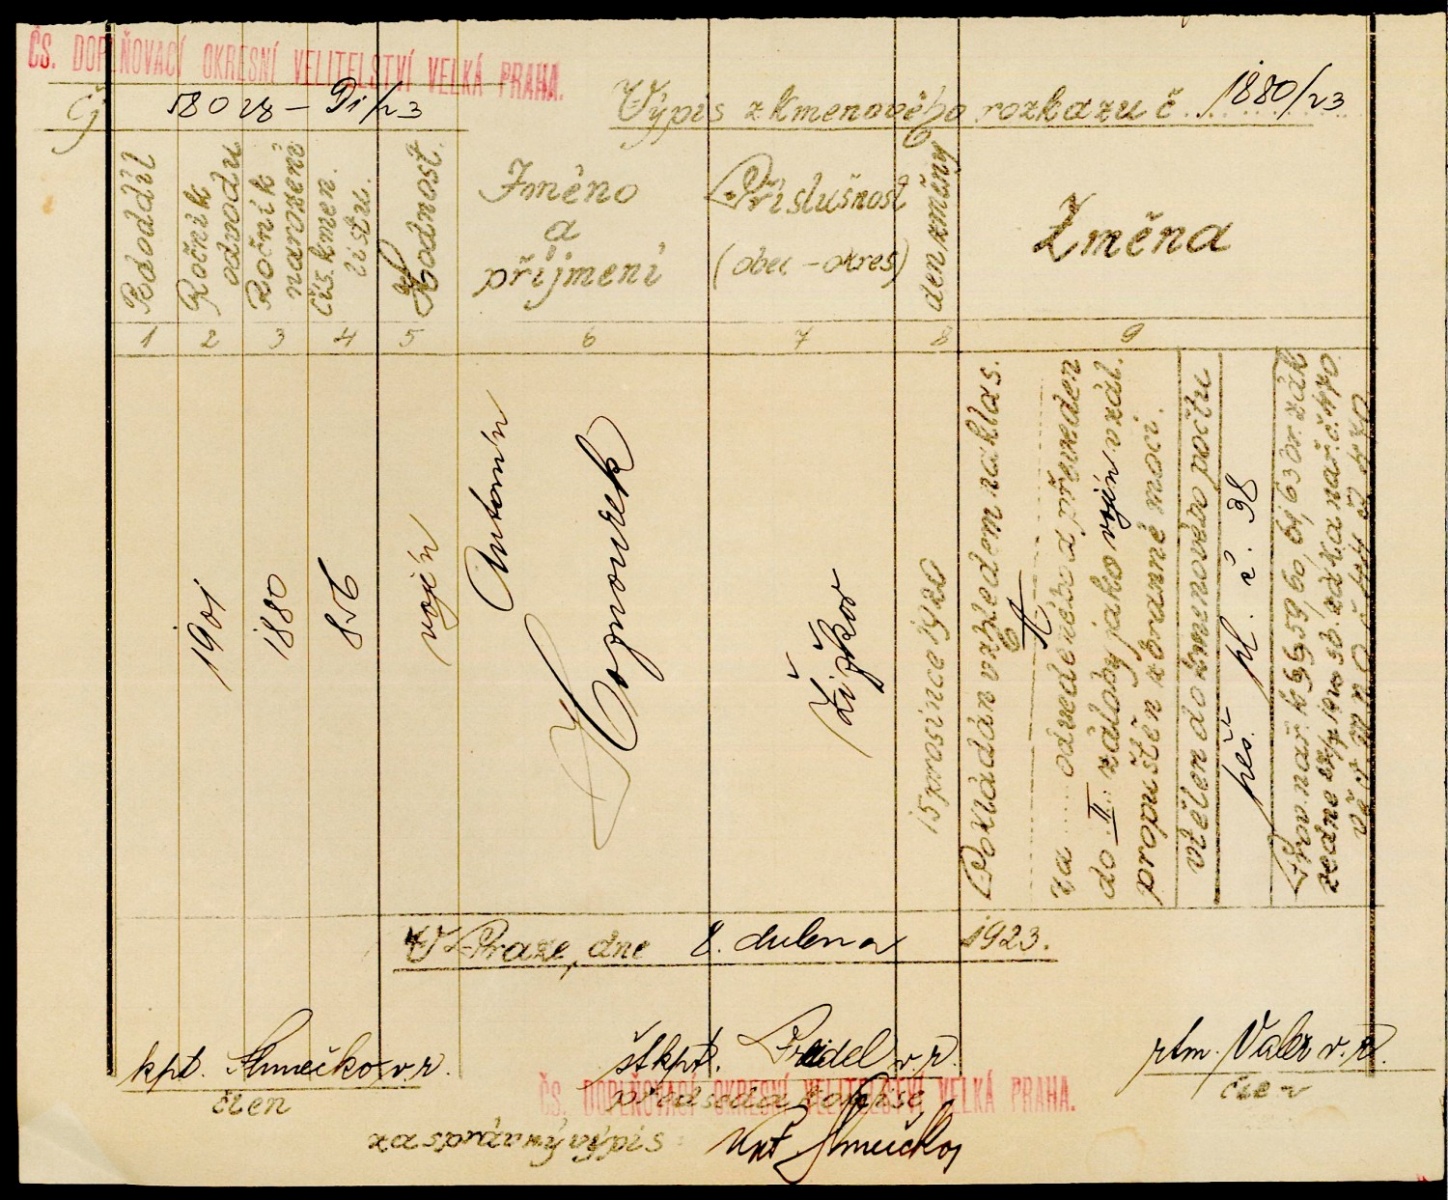 ČS. DOPLŇOVACÍ OKRESNÍ VELITELSTVÍ VELKÁ PRAHA.
Čj 58028 – Di/23
Výpis z kmenového rozkazu č. 1880/23
Pododdíl
Ročník odvodu
Ročník narození
Čís. kmen. listu.
Hodnost.
Jméno
a
příjmení
Příslušnost
(obec – okres)
den změny
Změna
1 2 3 4 5 6 7 8 9
1901
1880
856
vojín
Antonín
Žižkov
15 prosince 1920
Pokládán vzhledem na klas.
A
za odvedeného a převeden
do II. zálohy jako vojín v zál.
propuštěn z branné moci.
vtělen do kmenového počtu
pěš. pl. č. 98
V Praze, dne 8. dubna 1923.
kpt. v. r.
člen
štkpt. v. r.
předseda komise
rtm. v. r.
člen
ČS. DOPLŇOVACÍ OKRESNÍ VELITELSTVÍ VELKÁ PRAHA.
za správný výpis: